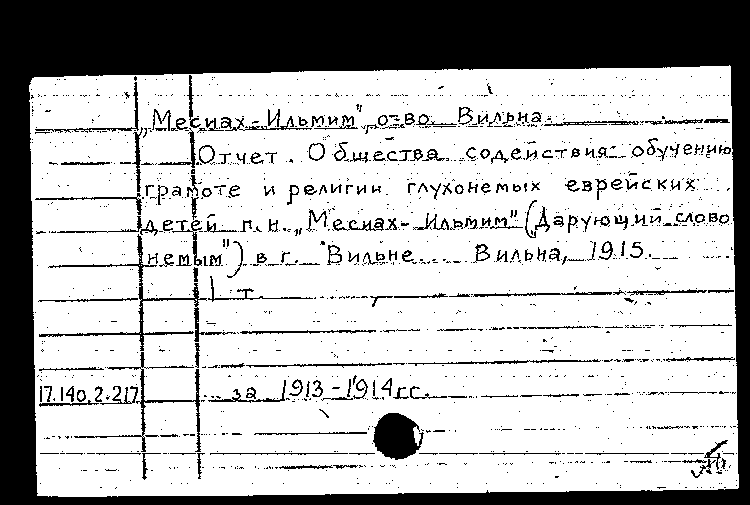 „Месиах-Ильмим", о-во. Вильна.
Отчет. Общества содействия обучению
грамоте и религии глухонемых еврейских
детей п. н. „Месиах-Ильмим" („Дарующий слово
немым") в г. Вильне... Вильна, 1915.
1 т.
17.140.2.217 за 1913-1914 гг.